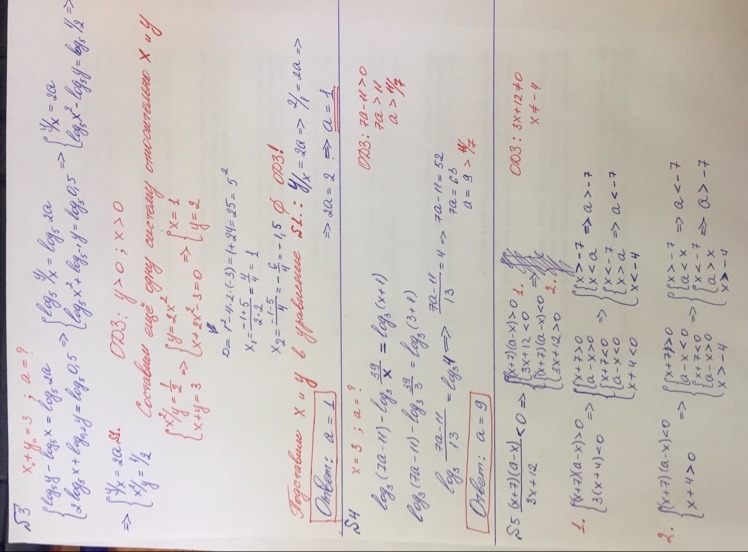 №3 x₀+y₀=3 ; a=?
{log₅y - log₅x = log₅2a
{2log₅x + log₀,₂y = log₅0,5 => {log₅ y/x = log₅2a
{log₅x² + log₅₋₁y = log₅0,5 => {y/x = 2a
{log₅x² - log₅y = log₅ 1/2 =>
=> {y/x = 2a S1.
{x²/y = 1/2
ОДЗ: y>0 ; x>0
Составим ещё одну систему относительно x и y
{x²/y = 1/2
{x+y=3 => {y=2x²
{x+2x²-3=0 => {x=1
{y=2
D = 1²-4·2·(-3) = 1+24 = 25 = 5²
x₁ = -1+5/2·2 = 4/4 = 1
x₂ = -1-5/4 = -6/4 = -1,5 ∅ ОДЗ!
Подставим x и y в уравнение S1.: y/x = 2a => 2/1 = 2a =>
=> 2a = 2 => a = 1
Ответ: a = 1
№4 x = 3 ; a = ?
log₃(7a-11) - log₃ 39/x = log₃(x+1)
ОДЗ: 7a-11>0
7a > 11
a > 11/7
log₃(7a-11) - log₃ 39/3 = log₃(3+1)
log₃ 7a-11/13 = log₃4 => 7a-11/13 = 4 => 7a-11 = 52
7a = 63
a = 9 > 11/7
Ответ: a = 9
№5 (x+7)(a-x)/3x+12 < 0 => 1. {(x+7)(a-x)>0
{3x+12<0
2. {(x+7)(a-x)<0
{3x+12>0
ОДЗ: 3x+12≠0
x≠-4
1. {(x+7)(a-x)>0
{3(x+4)<0 => {{x+7>0
{a-x>0
{{x+7<0
{a-x<0
{x+4<0 => {{x>-7
{x<a => a>-7
{{x<-7
{x>a => a<-7
{x<-4
2. {(x+7)(a-x)<0
{x+4>0 => {{x+7>0
{a-x<0
{{x+7<0
{a-x>0
{x>-4 => {{x>-7
{a<x => a<-7
{{x<-7
{a>x => a>-7
{x>-4